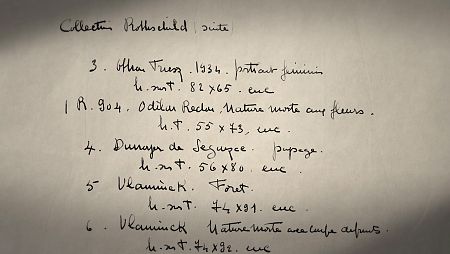 Collection Rothschild / suite
3. Othon Friesz. 1934. portrait féminin
h.s.T. 82x65. enc
R. 904. Odilon Redon, Nature morte aux fleurs.
h.T. 55x73, enc.
4. Dunoyer de Segonzac. paysage.
h.s.T. 56x80. enc
5 Vlaminck. Foret
h.s.T. 74x91. enc.
6. Vlaminck Nature morte avec coupe de fruits.
h.s.T. 74x92. enc